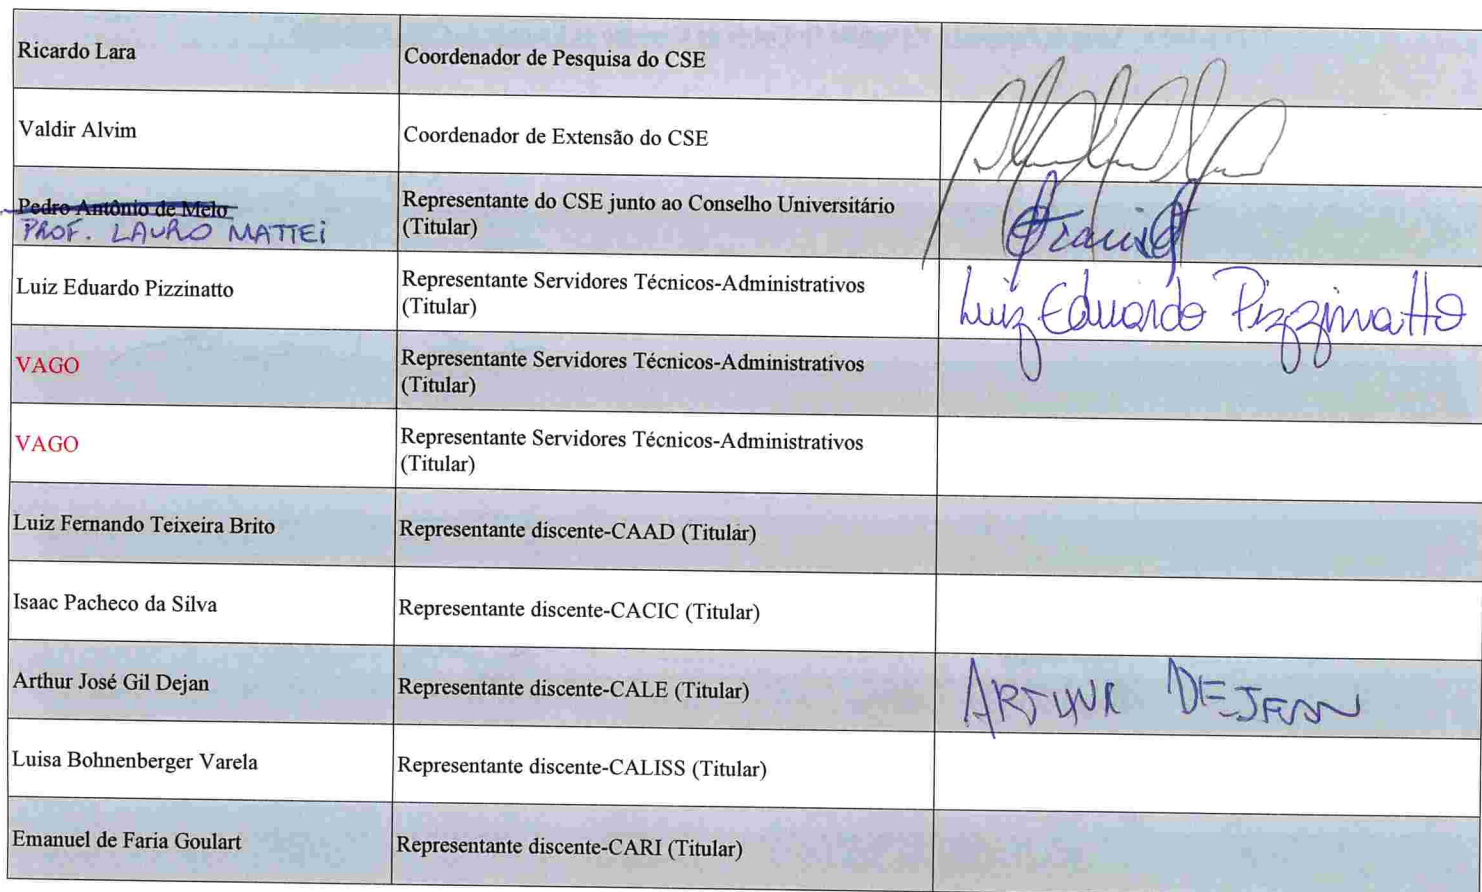 Ricardo Lara
Coordenador de Pesquisa do CSE
Valdir Alvim
Coordenador de Extensão do CSE
Pedro Antônio de Melo
PROF. LAURO MATTEI
Representante do CSE junto ao Conselho Universitário
(Titular)
Luiz Eduardo Pizzinatto
Representante Servidores Técnicos-Administrativos
(Titular)
Luiz Eduardo Pizzinatto
VAGO
Representante Servidores Técnicos-Administrativos
(Titular)
VAGO
Representante Servidores Técnicos-Administrativos
(Titular)
Luiz Fernando Teixeira Brito
Representante discente-CAAD (Titular)
Isaac Pacheco da Silva
Representante discente-CACIC (Titular)
Arthur José Gil Dejan
Representante discente-CALE (Titular)
Luisa Bohnenberger Varela
Representante discente-CALISS (Titular)
Emanuel de Faria Goulart
Representante discente-CARI (Titular)